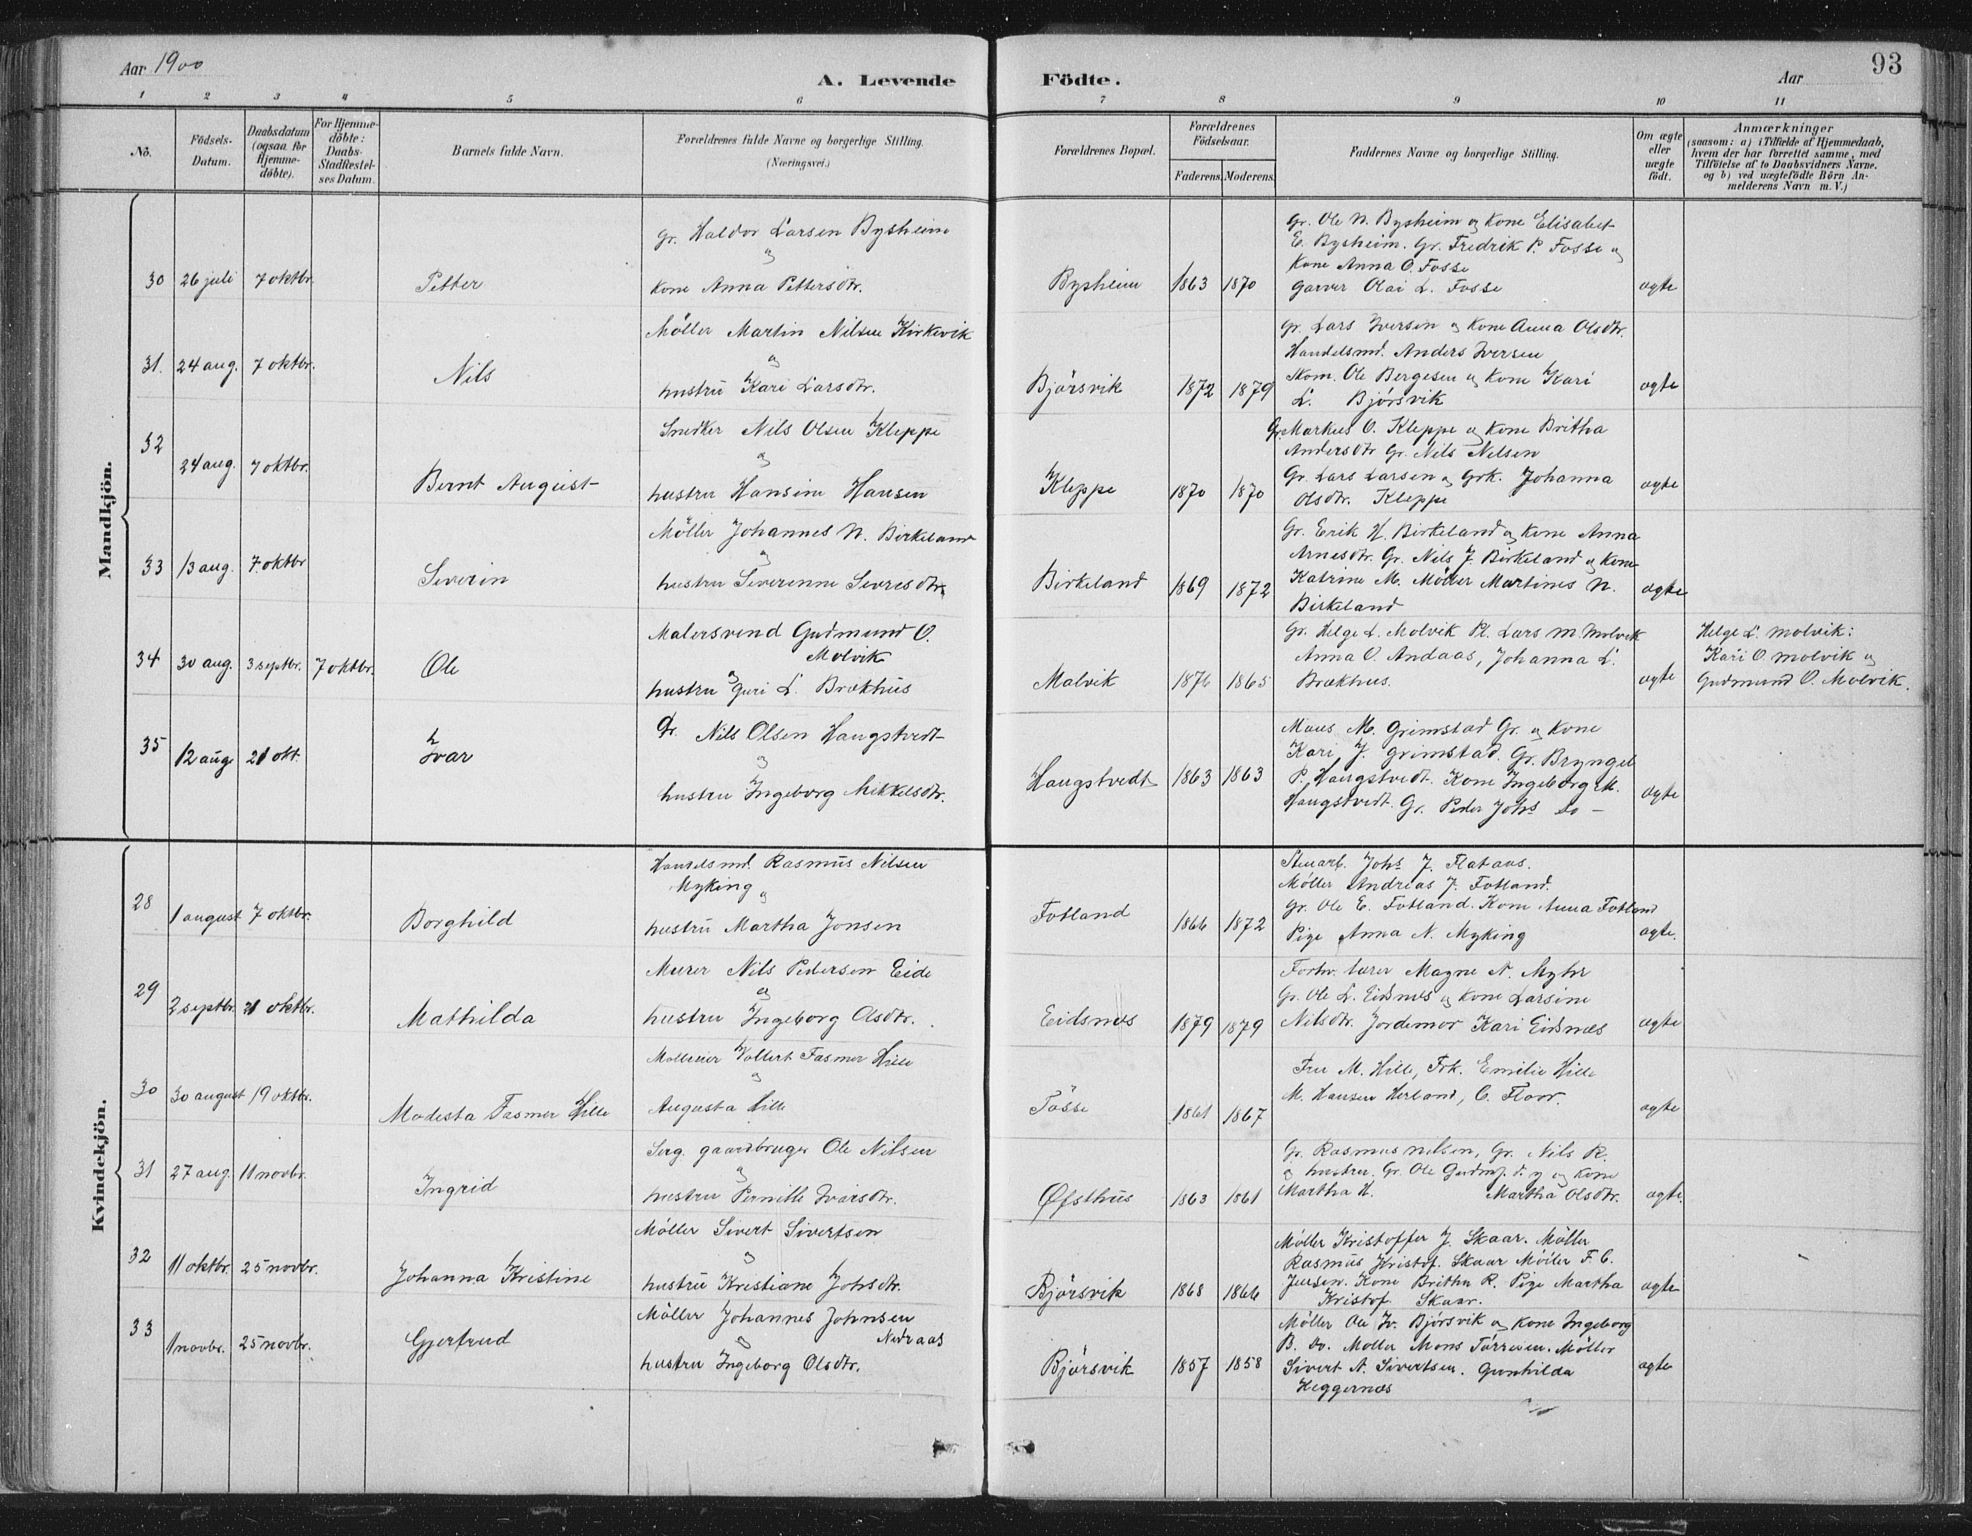 Aar 1900
A. Levende Födte.
Aar
93
1 2 3 4 5 6 7 8 9 10 11
Nö.
Födsels-
Datum.
Daabsdatum
(ogsaa for
Hjemme-
döbte).
For Hjemme-
döbte:
Daabs-
Stadfæstel-
ses Datum.
Barnets fulde Navn.
Forældrenes fulde Navne og borgerlige Stilling.
(Næringsvei.)
Forældrenes Bopæl.
Forældrenes
Födselsaar.
Faderens. Moderens.
Faddernes Navne og borgerlige Stilling.
Om ægte
eller
uægte
födt.
Anmærkninger
(saasom: a) i Tilfælde af Hjemmedaab,
hvem der har forrettet samme, med
Tilföielse af to Daabsvidners Navne.
og b) ved uægtefödte Börn An-
melderens Navn m. V.)
Mandkjön.
30 26 juli 7 oktbr. Petter
Gr. Haldor Larsen Bysheim
og
Kone Anna Pettersdtr.
Bysheim 1863 1870
Gr. Ole N. Bysheim og Kone Elisabet
E. Bysheim. Gr. Fredrik P. Fosse og
Kone Anna O. Fosse
Garver Olai L. Fosse
ægte
31. 24 aug. 7 oktbr. Nils
Möller Martin Nilsen Kirkevik
og
hustru Kari Larsdtr.
Bjørsvik 1872 1879
Gr. Lars Iversen og Kone Anna Olsdtr.
Handelsmd. Anders Iversen
Skom. Ole Bergesen og Kone Kari
L. Bjørsvik
ægte
32 24 aug. 7 oktbr. Bernt August
Snedker Nils Olsen Kleppe
og
hustru Hansine Hansen
Kleppe 1870 1870
Gr Markus O. Kleppe og Kone Britha
Andersdtr Gr. Nils Nilsen
Gr. Lars Larsen og Grk. Johanna
Olsdtr. Kleppe
ægte
33 13 aug. 7 oktbr Severin
Möller Johannes N. Birkeland
og
hustru Severinne Sevresdtr.
Birkeland 1869 1872
Gr. Erik H. Birkeland og Kone Anna
Arnesdtr. Gr. Nils J. Birkeland og Kone
Katrine M. Möller Martines N.
Birkeland
ægte
34 30 aug. 3 septbr. 7 oktbr. Ole
Malersvend Gudmund O.
Molvik
og
hustru Guri L. Brækhus
Molvik 1876 1865
Gr. Helge L. Molvik Pl. Lars M. Molvik
Anna O. Andaas, Johanna L.
Brækhus.
ægte
Helge L. Molvik:
Kari O. Molvik og
Gudmund O. Molvik.
35 12 aug 21 okt. Ivar
Gr. Nils Olsen Haugstvedt
og
hustru Ingeborg Mikkelsdtr.
Haugstvedt 1863 1863
Mons M. Grimstad Gr. og Kone
Kari J. Grimstad. Gr. Bryngel
P. Haugstvedt. Kone Ingeborg M.
Haugstvedt. Gr. Peder Johs do —
ægte
Kvindekjön.
28 1 august 7 oktbr. Borghild
Handelsmd. Rasmus Nilsen
Myking og
hustru Martha Jonsen
Fotland 1866 1872
Stenarb. Johs J. Flataas.
Møller Andreas J. Fotland.
Gr. Ole E. Fotland. Kone Anna Fotland
Pige Anna N. Myking
ægte.
29 2 septbr. 21 oktbr. Mathilda
Murer Nils Pedersen Eide
og
hustru Ingeborg Olsdtr.
Eidsnes 1879 1879
Forhv. lærer Magne N. Myhr
Gr. Ole L. Eidsnes og Kone Larsine
Nilsdtr. Jordemor Kari Eidsnæs
ægte
30 30 august 19 oktbr. Modesta Fasmer Hille
Volkert Fasmer Hille
og
Augusta Hille
Tösse 1861 1867
Fru M. Hille, Frk. Emilie Hille
M. Hansen Herland, C. Floor.
ægte
31 27 aug. 11 novbr. Ingrid
Serg. gaardbruger Ole Nilsen
og
hustru Pernille Ivarsdtr.
Øfsthus 1863 1861
Gr. Rasmus Nilsen, Gr. Nils R.
og hustru. Gr. Ole og Kone
Martha H. Martha Olsdtr.
ægte.
32 11 oktbr. 25 novbr. Johanna Kristine
Möller Sivert Sivertsen
og
hustru Kristiane Johsdtr.
Bjørsvik 1868 1866
Møller Kristoffer J. Skaar. Möller
Rasmus Kristof. Skaar Möller F. C.
Jensen. Kone Britha R. Pige Martha
Kristof. Skaar.
ægte
33 1 novbr. 25 novbr. Gjertrud
Möller Johannes Johnsen
Nedraas
og
hustru Ingeborg Olsdtr.
Bjørsvik 1857 1858
Møller Ole Iv. Bjørsvik og Kone Ingeborg
B. do. Møller Mons Tørresen. Möller
Sivert N. Sivertsen. Gunhilda
Heggernæs
ægte